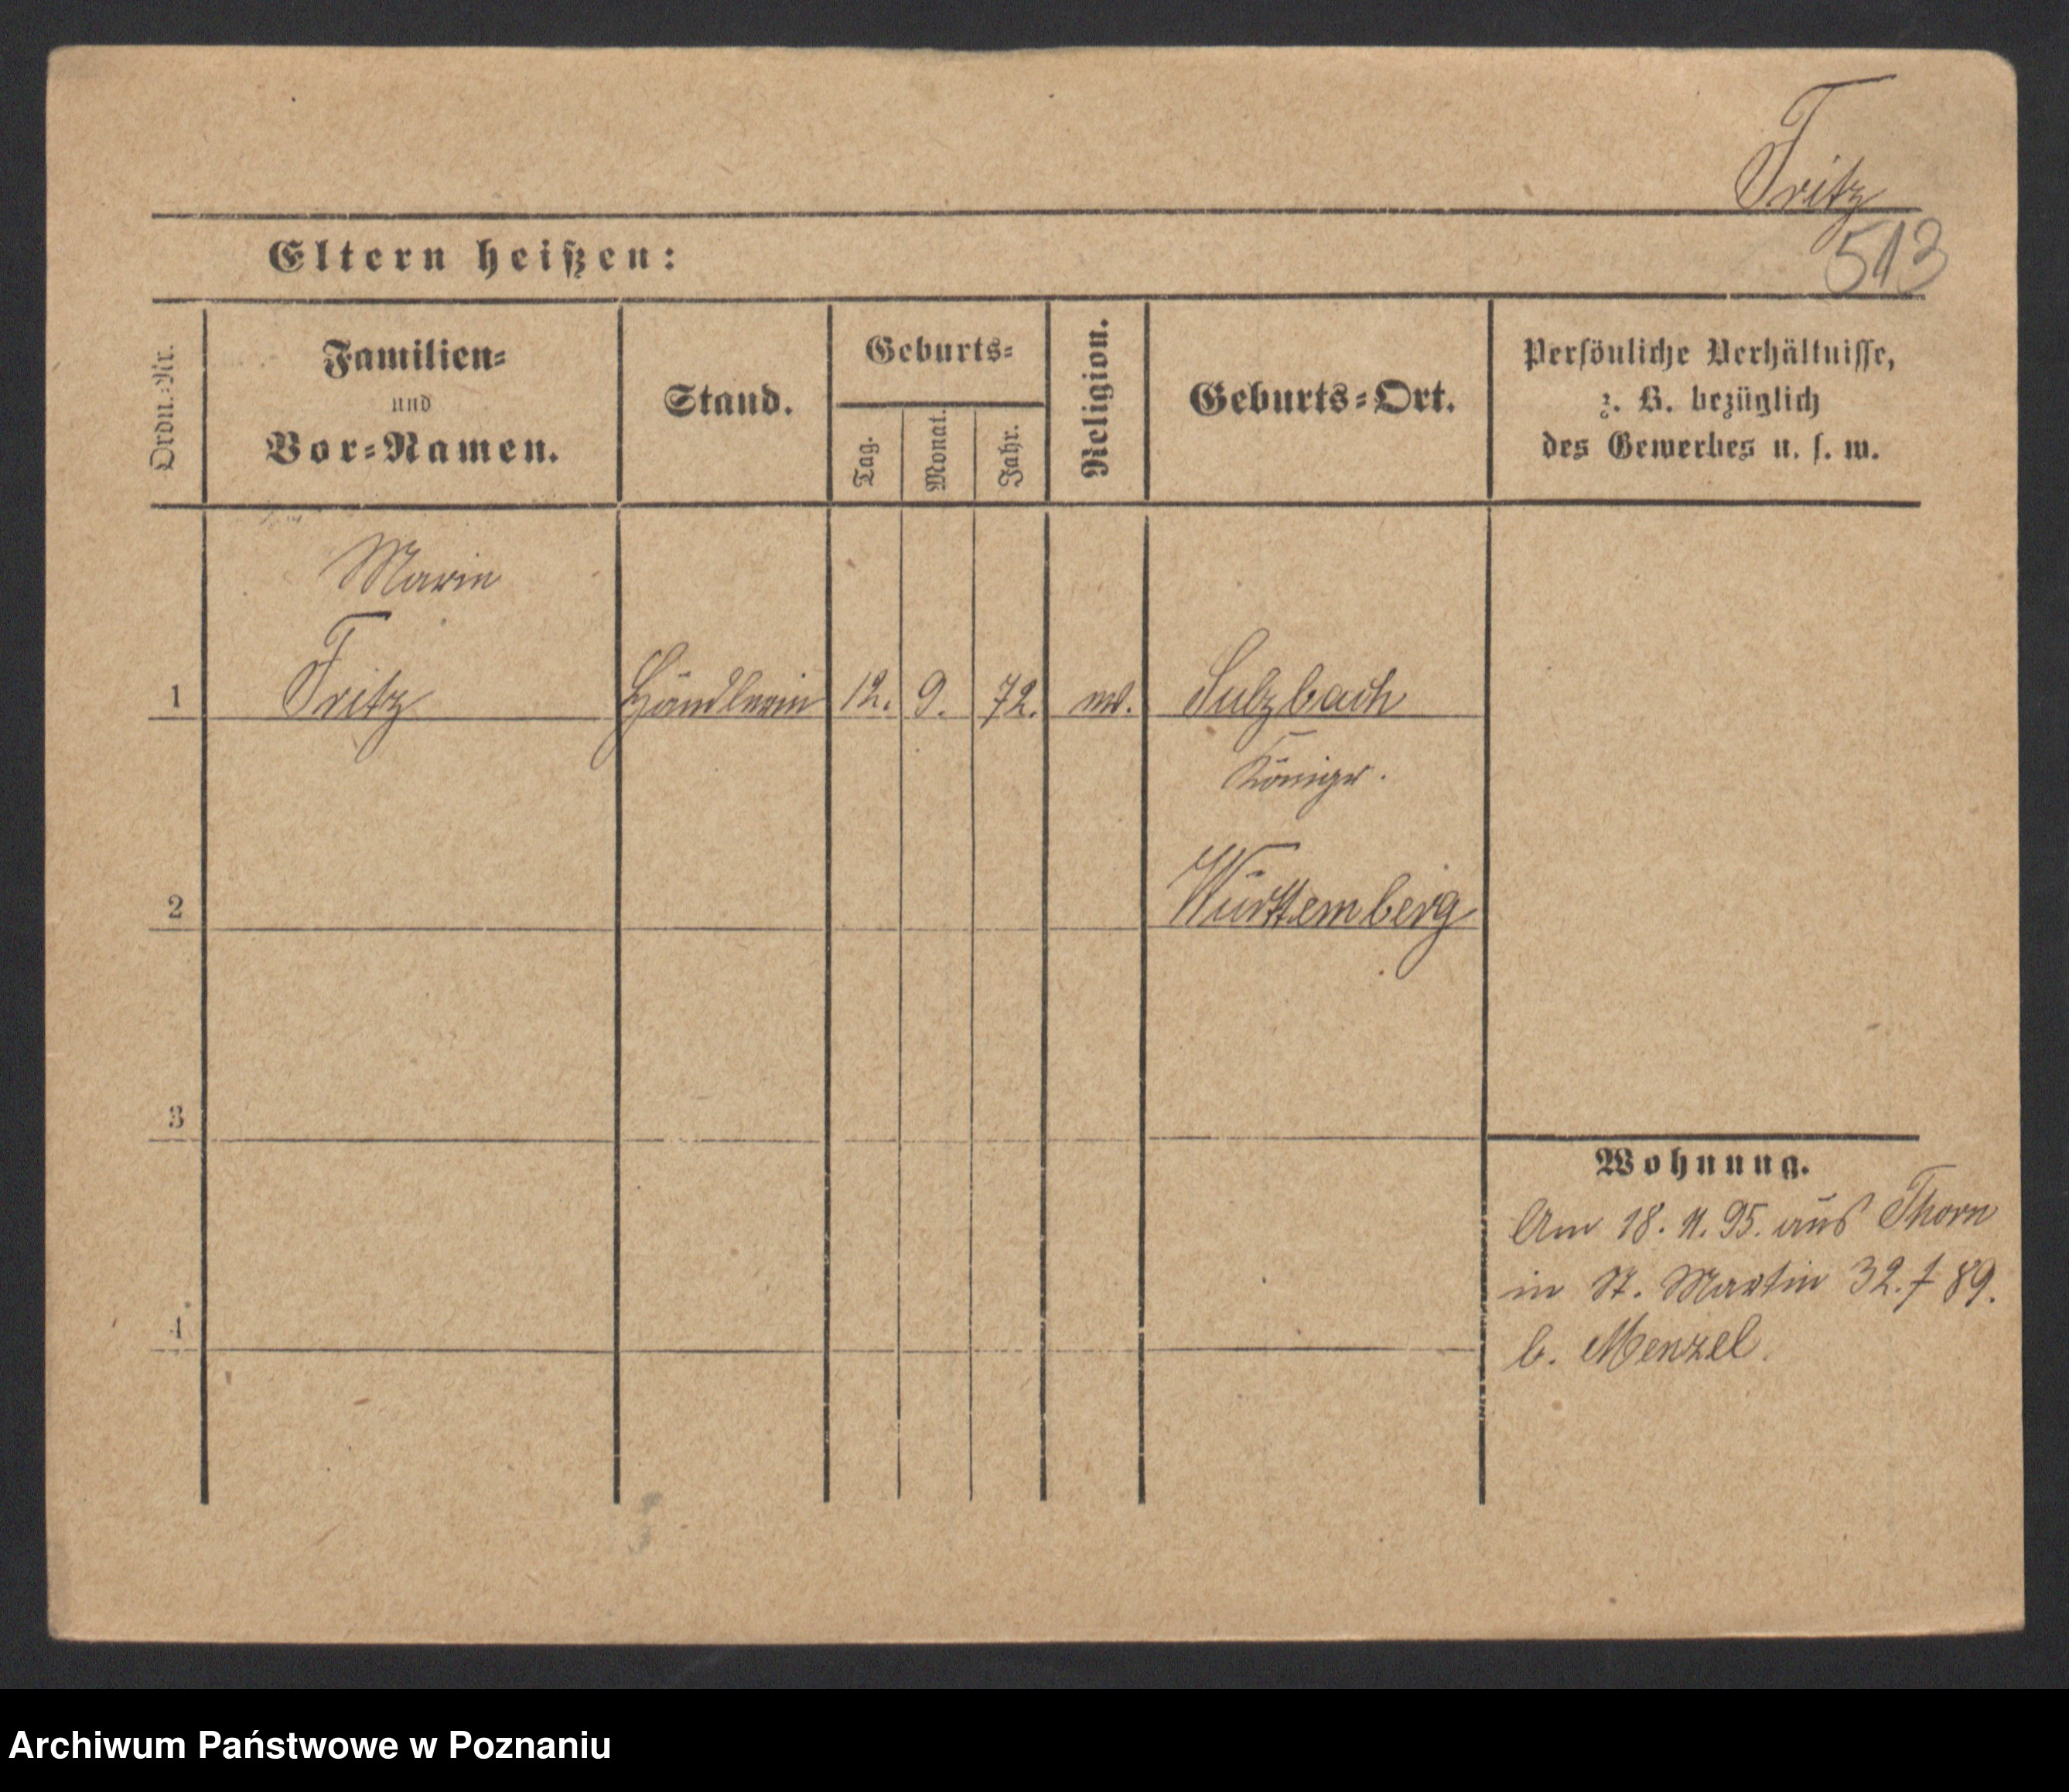 Fritz
513
Eltern heißen:
Ordn.-Nr.
Familien-
und
Vor-Namen.
Stand.
Geburts-
Tag.
Monat.
Jahr.
Religion.
Geburts-Ort.
Persönliche Verhältnisse,
z. B. bezüglich
des Gewerbes u. s. w.
Marie
1 Fritz Händlerin 12. 9. 72. ev. Sulzbach
Königr.
2 Württemberg
3
Wohnung.
Am 18. 11. 95. aus Thorn
in St. Martin 32. f 89.
4
b. Menzel.
Archiwum Państwowe w Poznaniu